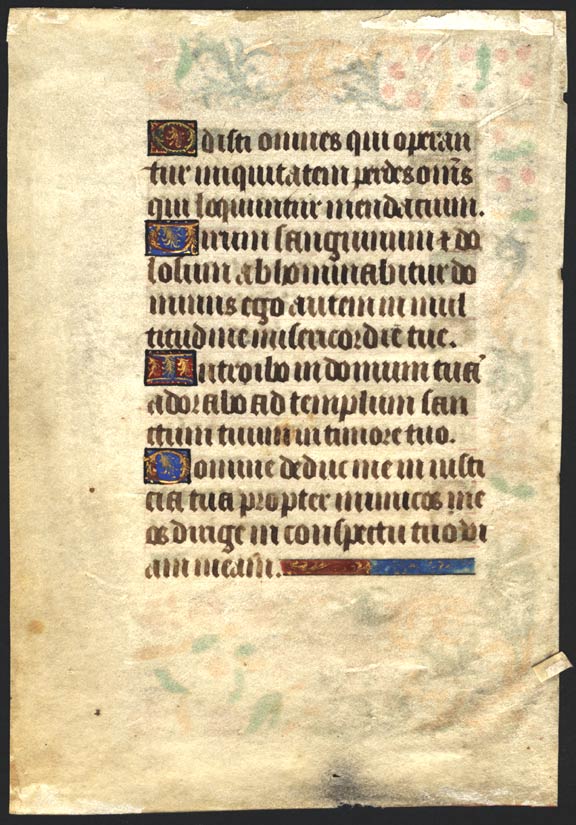 Odisti omnes qui operan
tur iniquitatem perdes om̄s
qui loquuntur mendacium.
Virum sanguinum ⁊ do
losum abhominabitur do
minus ego autem in mul
titudine misericordie tue.
Introibo in domum tuā
adorabo ad templum san
ctum tuum in timore tuo.
Domine deduc me in iusti
cia tua propter inimicos me
os dirige in conspectu tuo vi
am meam.